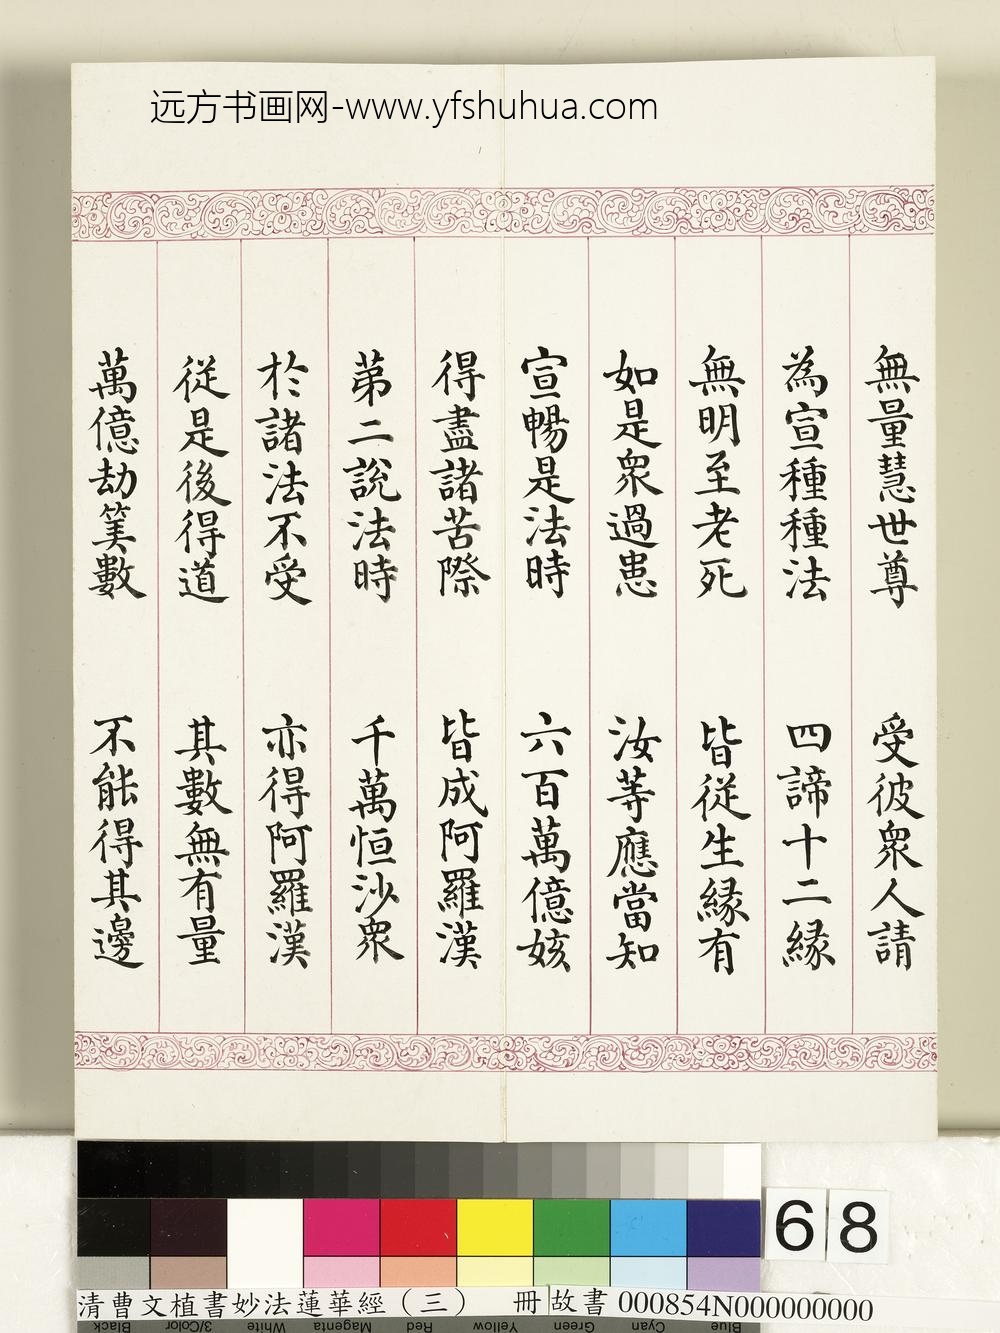 远方书画网-www.yfshuhua.com
無量慧世尊 受彼衆人請
為宣種種法 四諦十二緣
無明至老死 皆從生緣有
如是衆過患 汝等應當知
宣暢是法時 六百萬億姟
得盡諸苦際 皆成阿羅漢
第二說法時 千萬恒沙衆
於諸法不受 亦得阿羅漢
從是後得道 其數無有量
萬億劫筭數 不能得其邊
68
清曹文植書妙法蓮華經（三） 冊 故書 000854N000000000
Black 3/Color White Magenta Red Yellow Green Cyan Blue